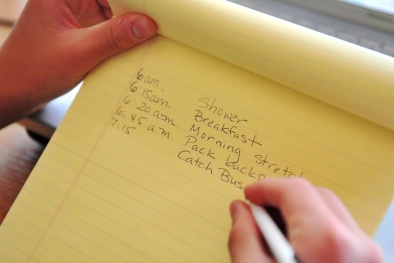 6 am. Shower
6 15am. Breakfast
6. 20 a.m. Morning Stretch
6. 45 a.m. Pack backs
7.15 Catch Bus